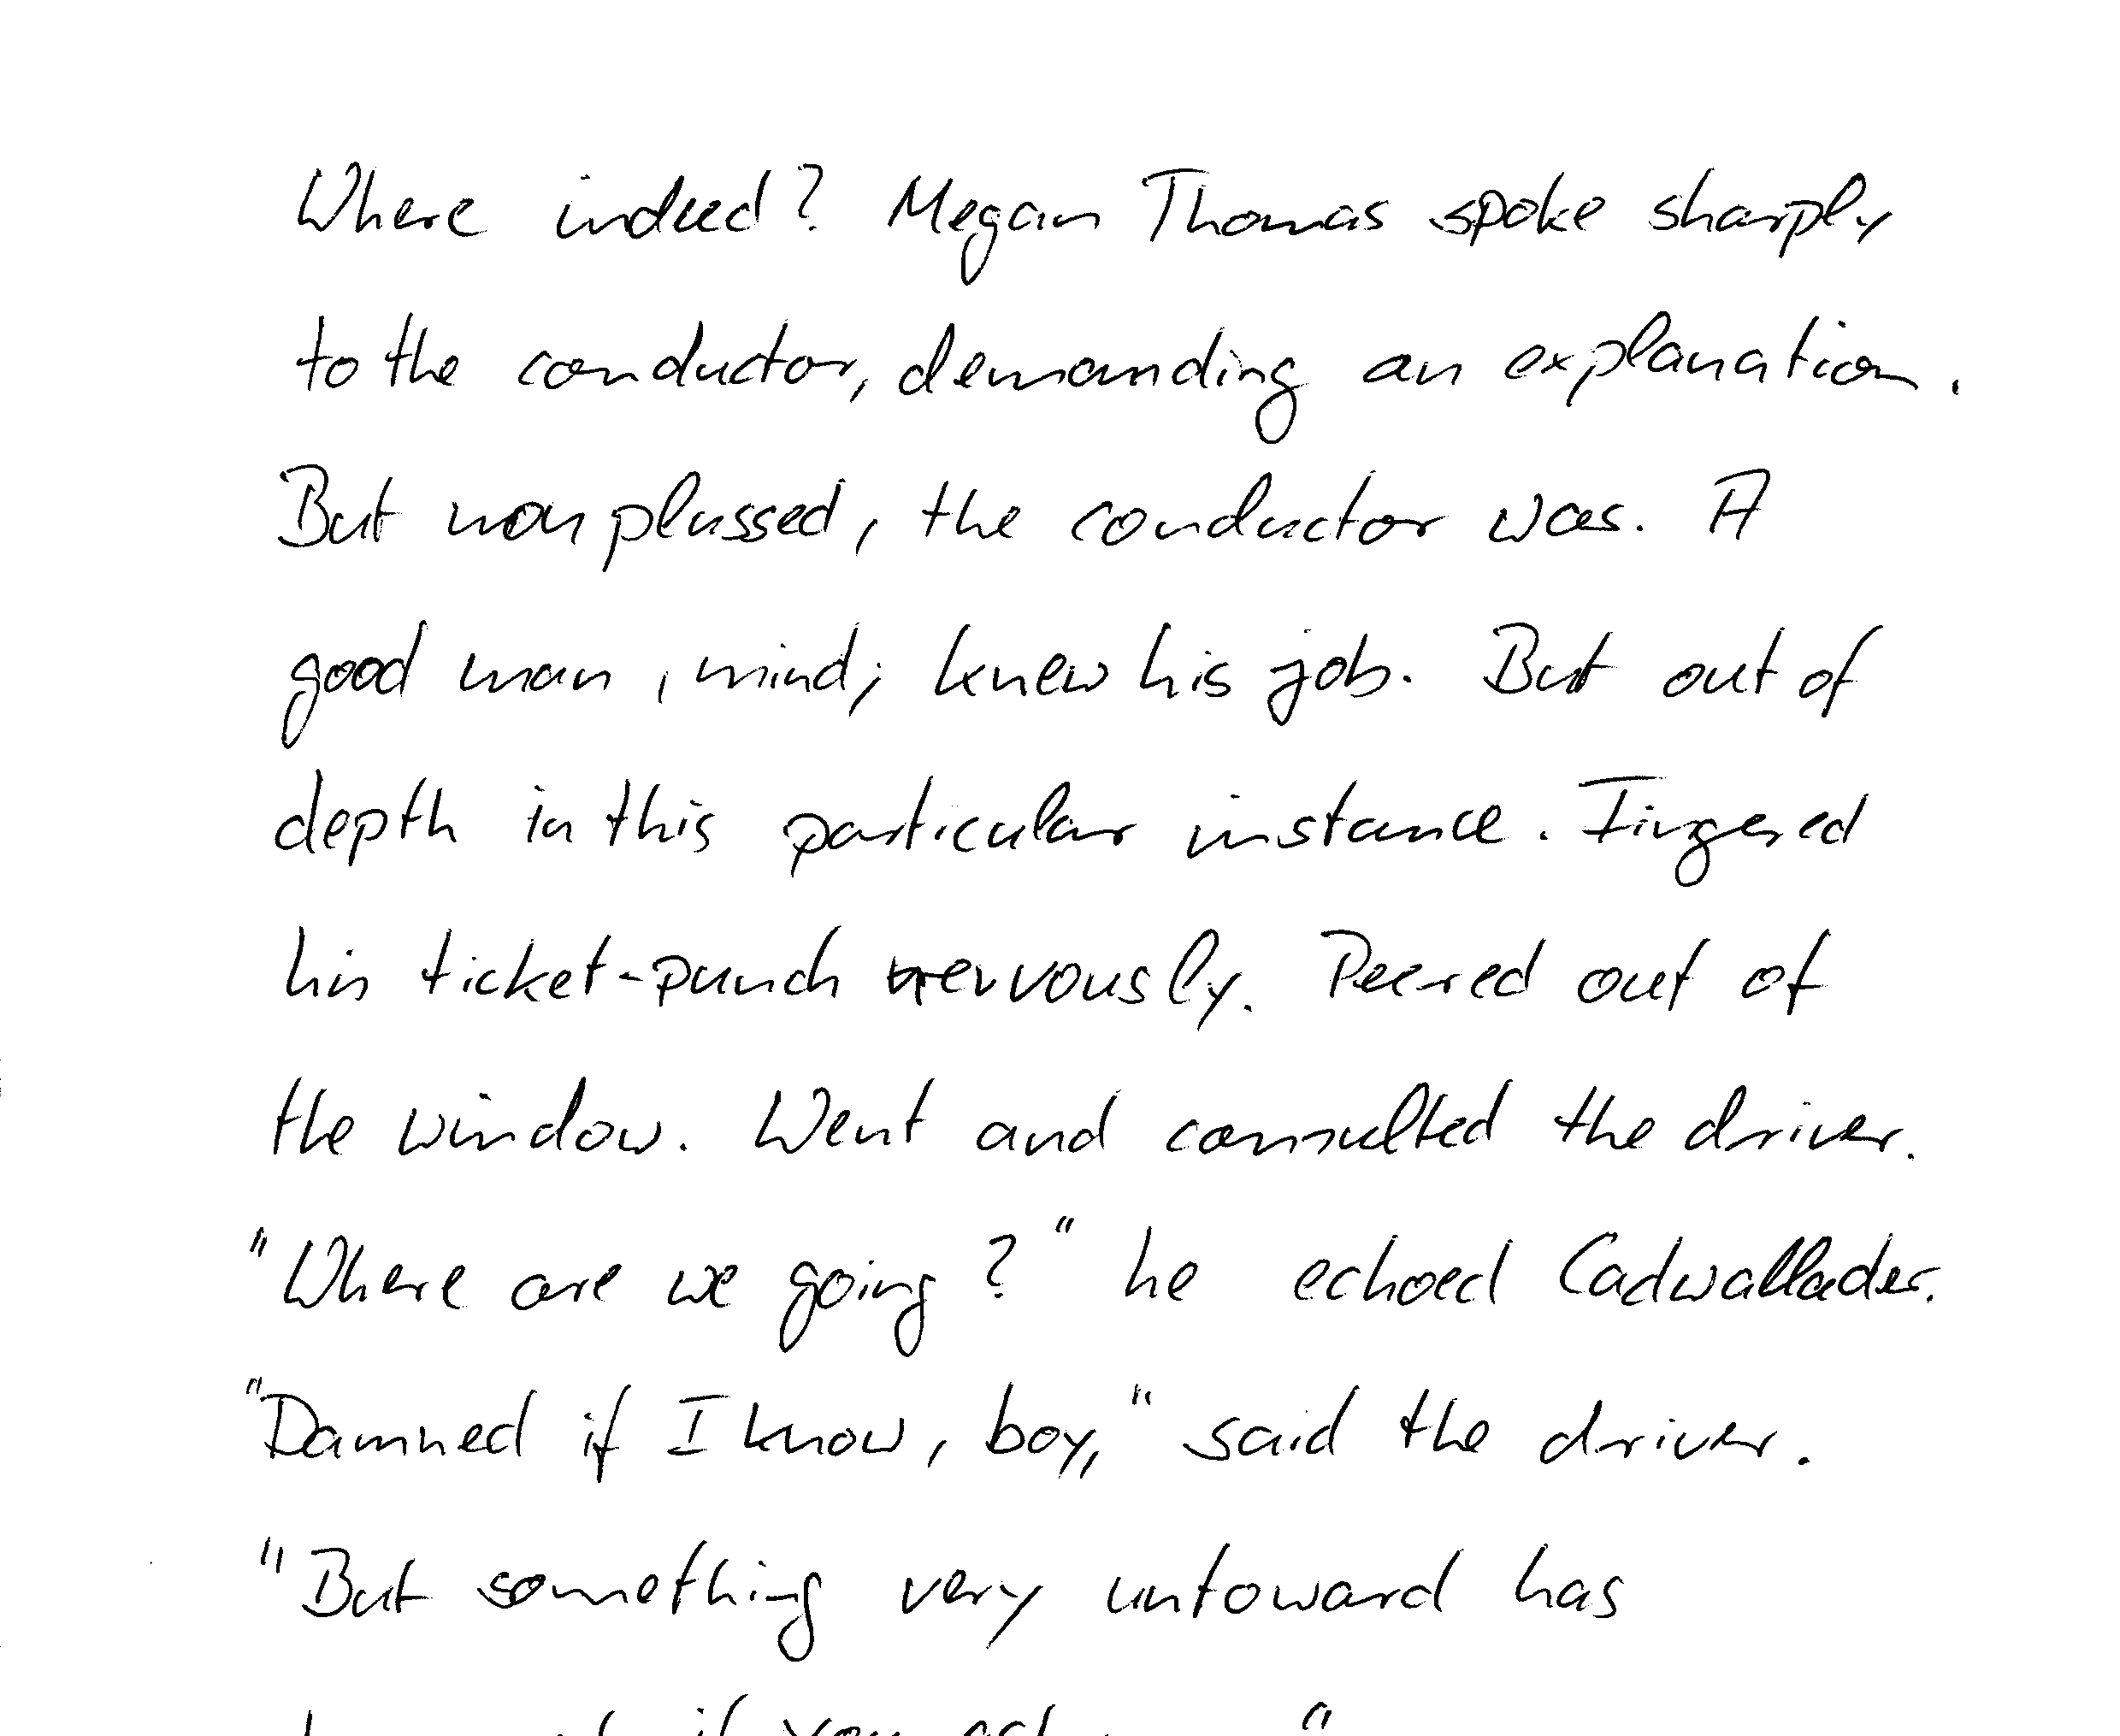 Where indeed? Megan Thomas spoke sharply
to the conductor, demanding an explanation.
But nonplussed, the conductor was. A
good man, mind; knew his job. But out of
depth in this particular instance. Fingered
his ticket-punch nervously. Peered out of
the window. Went and consulted the driver.
"Where are we going?" he echoed Cadwallader.
"Damned if I know, boy," said the driver.
"But something very untoward has
if you